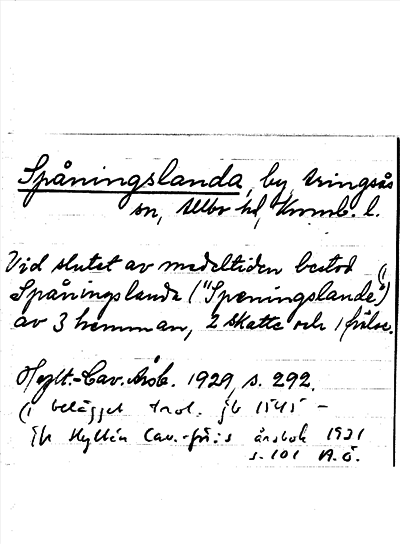 Spåningslanda, by, Aringsås
sn, Allbo hd, Kronob. l.
Vid slutet av medeltiden bestod (1
Spåningslanda ("Speningslande")
av 3 hemman, 2 skatte och 1 frälse.
Hylt.-Cav. Årsb. 1929, s. 292.
(1 belägget trol. jb 1545 –
jfr Hyltén Cav.-för:s årsbok 1931
s. 101 A.O.